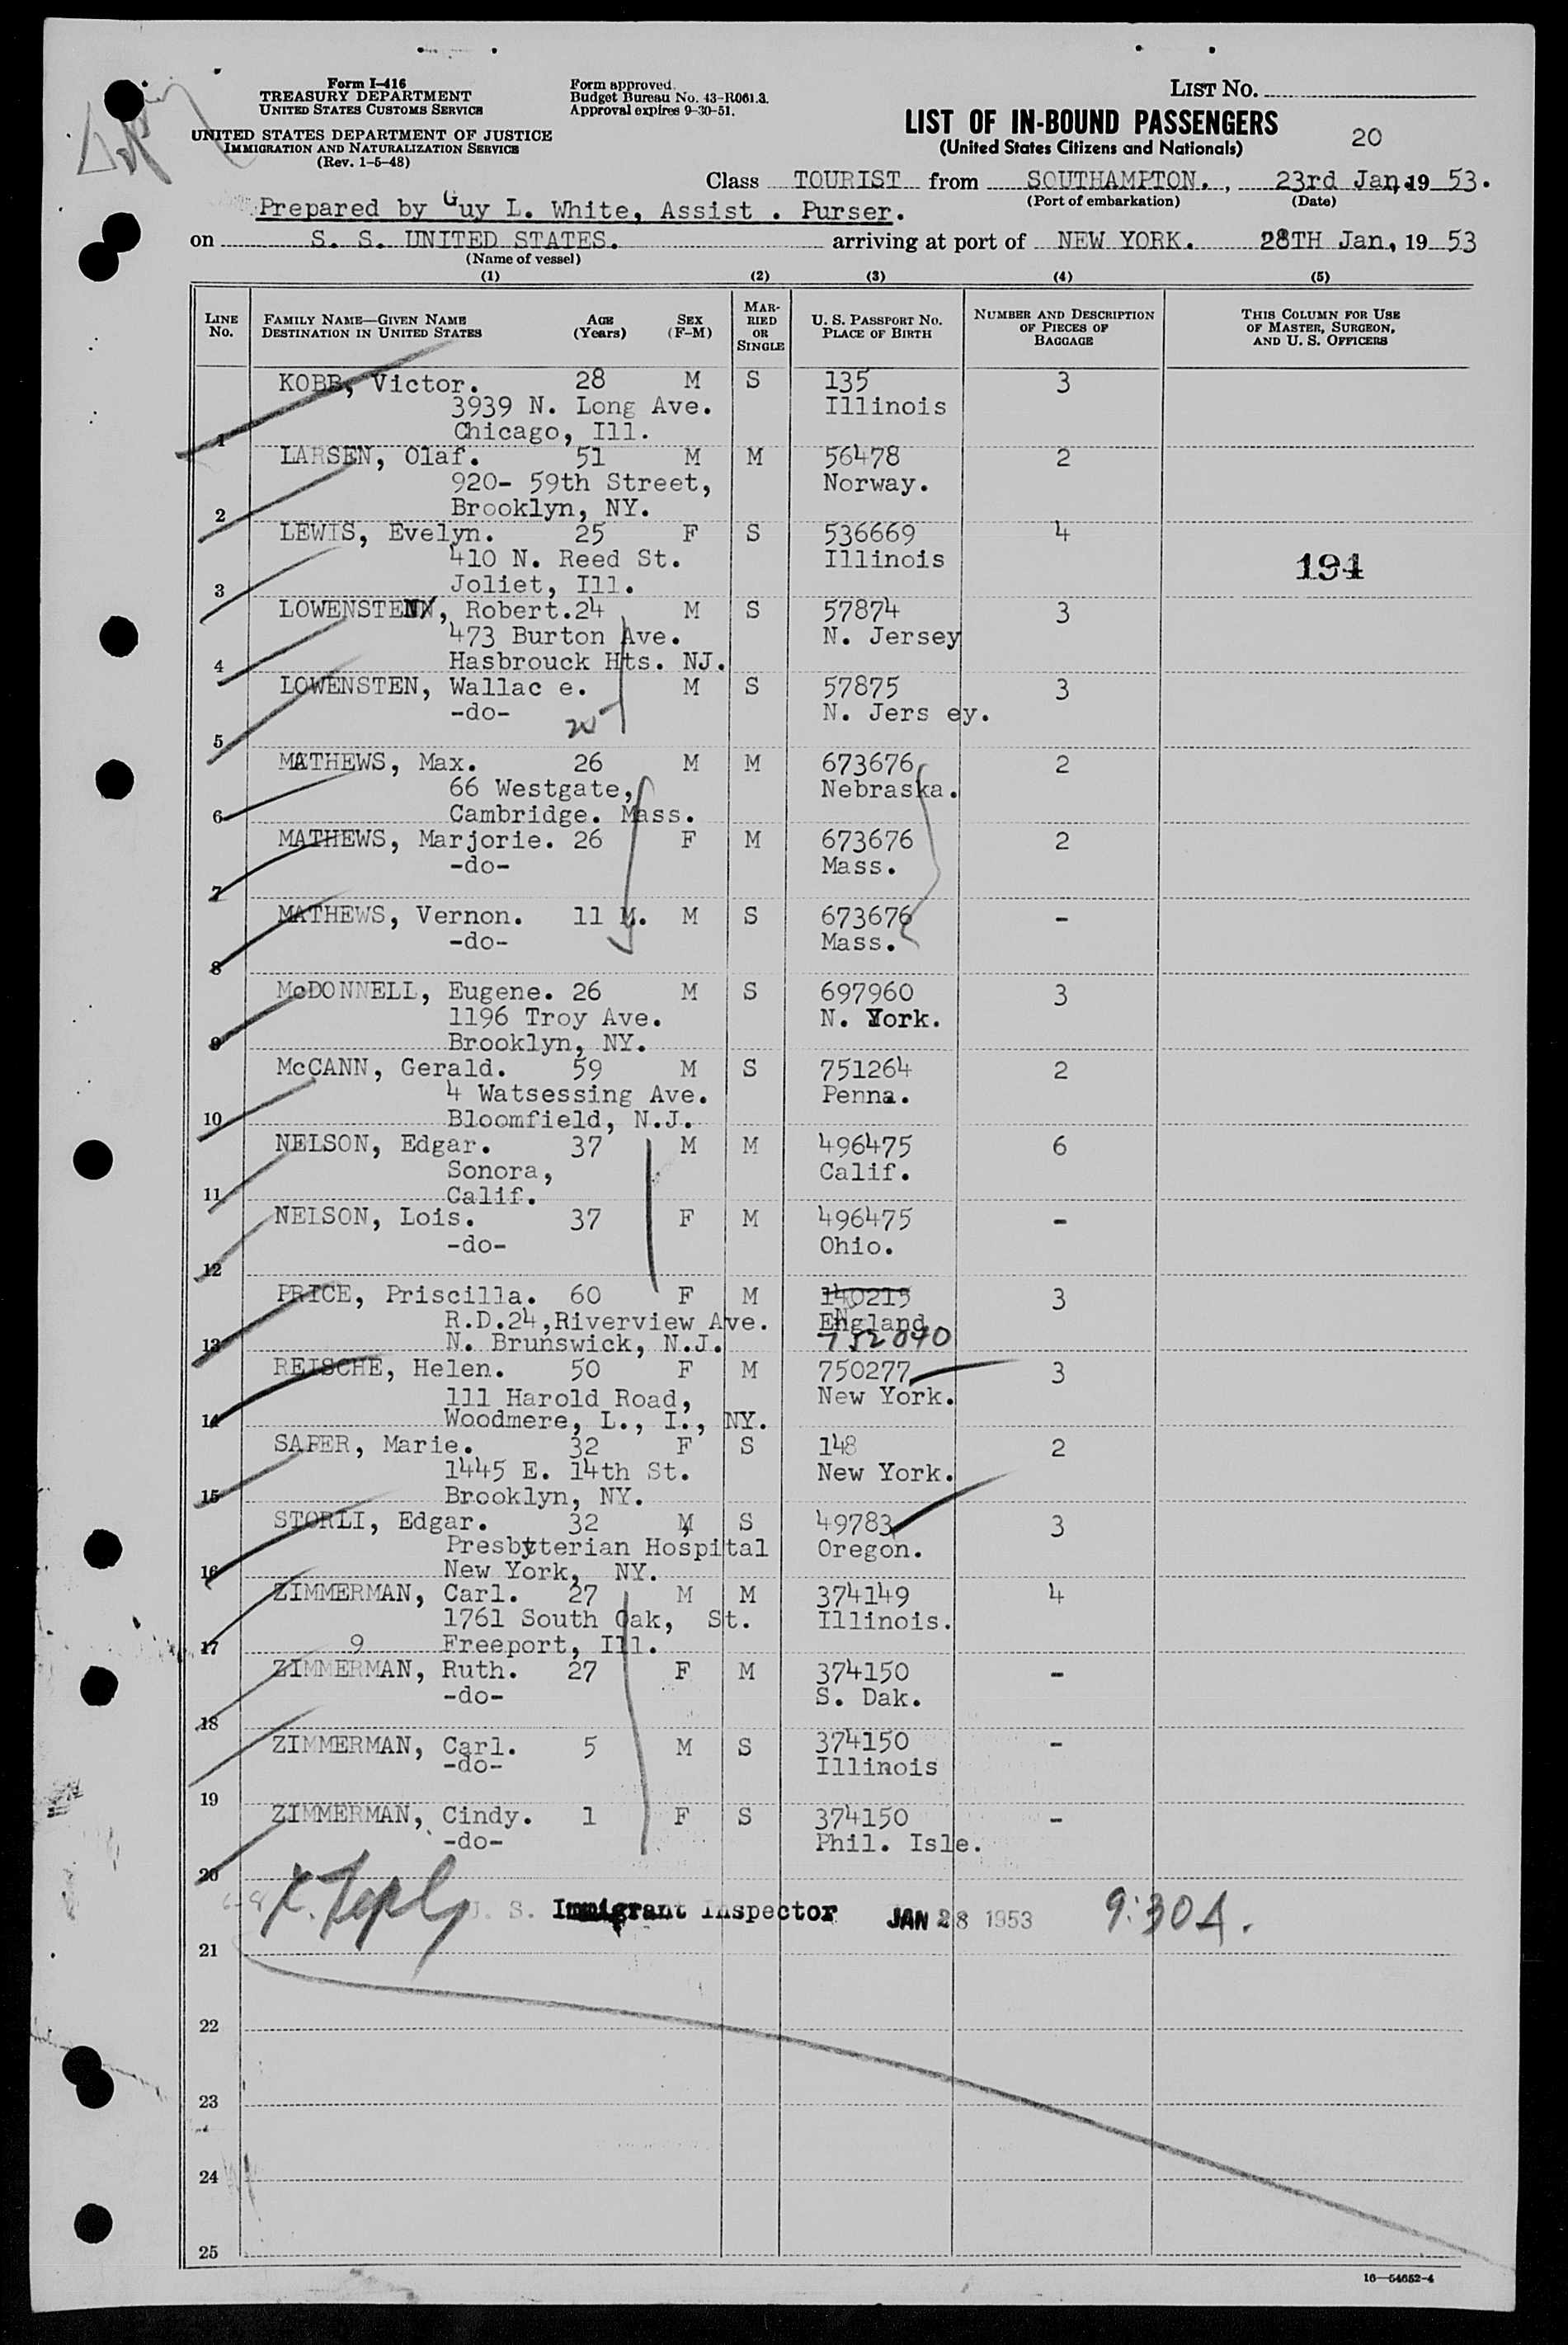 Form I-416
TREASURY DEPARTMENT
UNITED STATES CUSTOMS SERVICE
UNITED STATES DEPARTMENT OF JUSTICE
IMMIGRATION AND NATURALIZATION SERVICE
(Rev. 1-5-48)
Form approved.
Budget Bureau No. 43-R061.3.
Approval expires 9-30-51.
LIST NO.
LIST OF IN-BOUND PASSENGERS
(United States Citizens and Nationals)
20
Class TOURIST from SOUTHAMPTON. , 23rd Jan, 19 53.
(Port of embarkation) (Date)
Prepared by Guy L. White, Assist . Purser.
on S. S. UNITED STATES. arriving at port of NEW YORK. 28TH Jan, 19 53
(Name of vessel)
(1) (2) (3) (4) (5)
LINE NO. FAMILY NAME—GIVEN NAME DESTINATION IN UNITED STATES AGE (Years) SEX (F-M) MARRIED OR SINGLE U. S. PASSPORT NO. PLACE OF BIRTH NUMBER AND DESCRIPTION OF PIECES OF BAGGAGE THIS COLUMN FOR USE OF MASTER, SURGEON, AND U. S. OFFICERS
KOBB, Victor. 28 M S 135 3
3939 N. Long Ave. Illinois
1 Chicago, Ill.
LARSEN, Olaf. 51 M M 56478 2
920- 59th Street, Norway.
2 Brooklyn, NY.
LEWIS, Evelyn. 25 F S 536669 4
410 N. Reed St. Illinois 194
3 Joliet, Ill.
LOWENSTEN, Robert. 24 M S 57874 3
473 Burton Ave. N. Jersey
4 Hasbrouck Hts. NJ.
LOWENSTEN, Wallac e. M S 57875 3
-do- N. Jers ey.
5
MATHEWS, Max. 26 M M 673676 2
66 Westgate, Nebraska.
6 Cambridge. Mass.
MATHEWS, Marjorie. 26 F M 673676 2
-do- Mass.
7
MATHEWS, Vernon. 11 M. M S 673676 -
-do- Mass.
8
McDONNELL, Eugene. 26 M S 697960 3
1196 Troy Ave. N. York.
9 Brooklyn, NY.
McCANN, Gerald. 59 M S 751264 2
4 Watsessing Ave. Penna.
10 Bloomfield, N.J.
NELSON, Edgar. 37 M M 496475 6
Sonora, Calif.
11 Calif.
NELSON, Lois. 37 F M 496475 -
-do- Ohio.
12
PRICE, Priscilla. 60 F M 140215 3
R.D.24,Riverview Ave. England
13 N. Brunswick, N.J. 752070
REISCHE, Helen. 50 F M 750277 3
111 Harold Road, New York.
14 Woodmere, L., I., NY.
SAPER, Marie. 32 F S 148 2
1445 E. 14th St. New York.
15 Brooklyn, NY.
STORLI, Edgar. 32 M S 49783 3
Presbyterian Hospital Oregon.
16 New York, NY.
ZIMMERMAN, Carl. 27 M M 374149 4
1761 South Oak, St. Illinois.
17 9 Freeport, Ill.
ZIMMERMAN, Ruth. 27 F M 374150 -
-do- S. Dak.
18
ZIMMERMAN, Carl. 5 M S 374150 -
-do- Illinois
19
ZIMMERMAN, Cindy. 1 F S 374150 -
-do- Phil. Isle.
20
U. S. Immigrant Inspector JAN 28 1953 9:30A.
21
22
23
24
25
16—54652-4